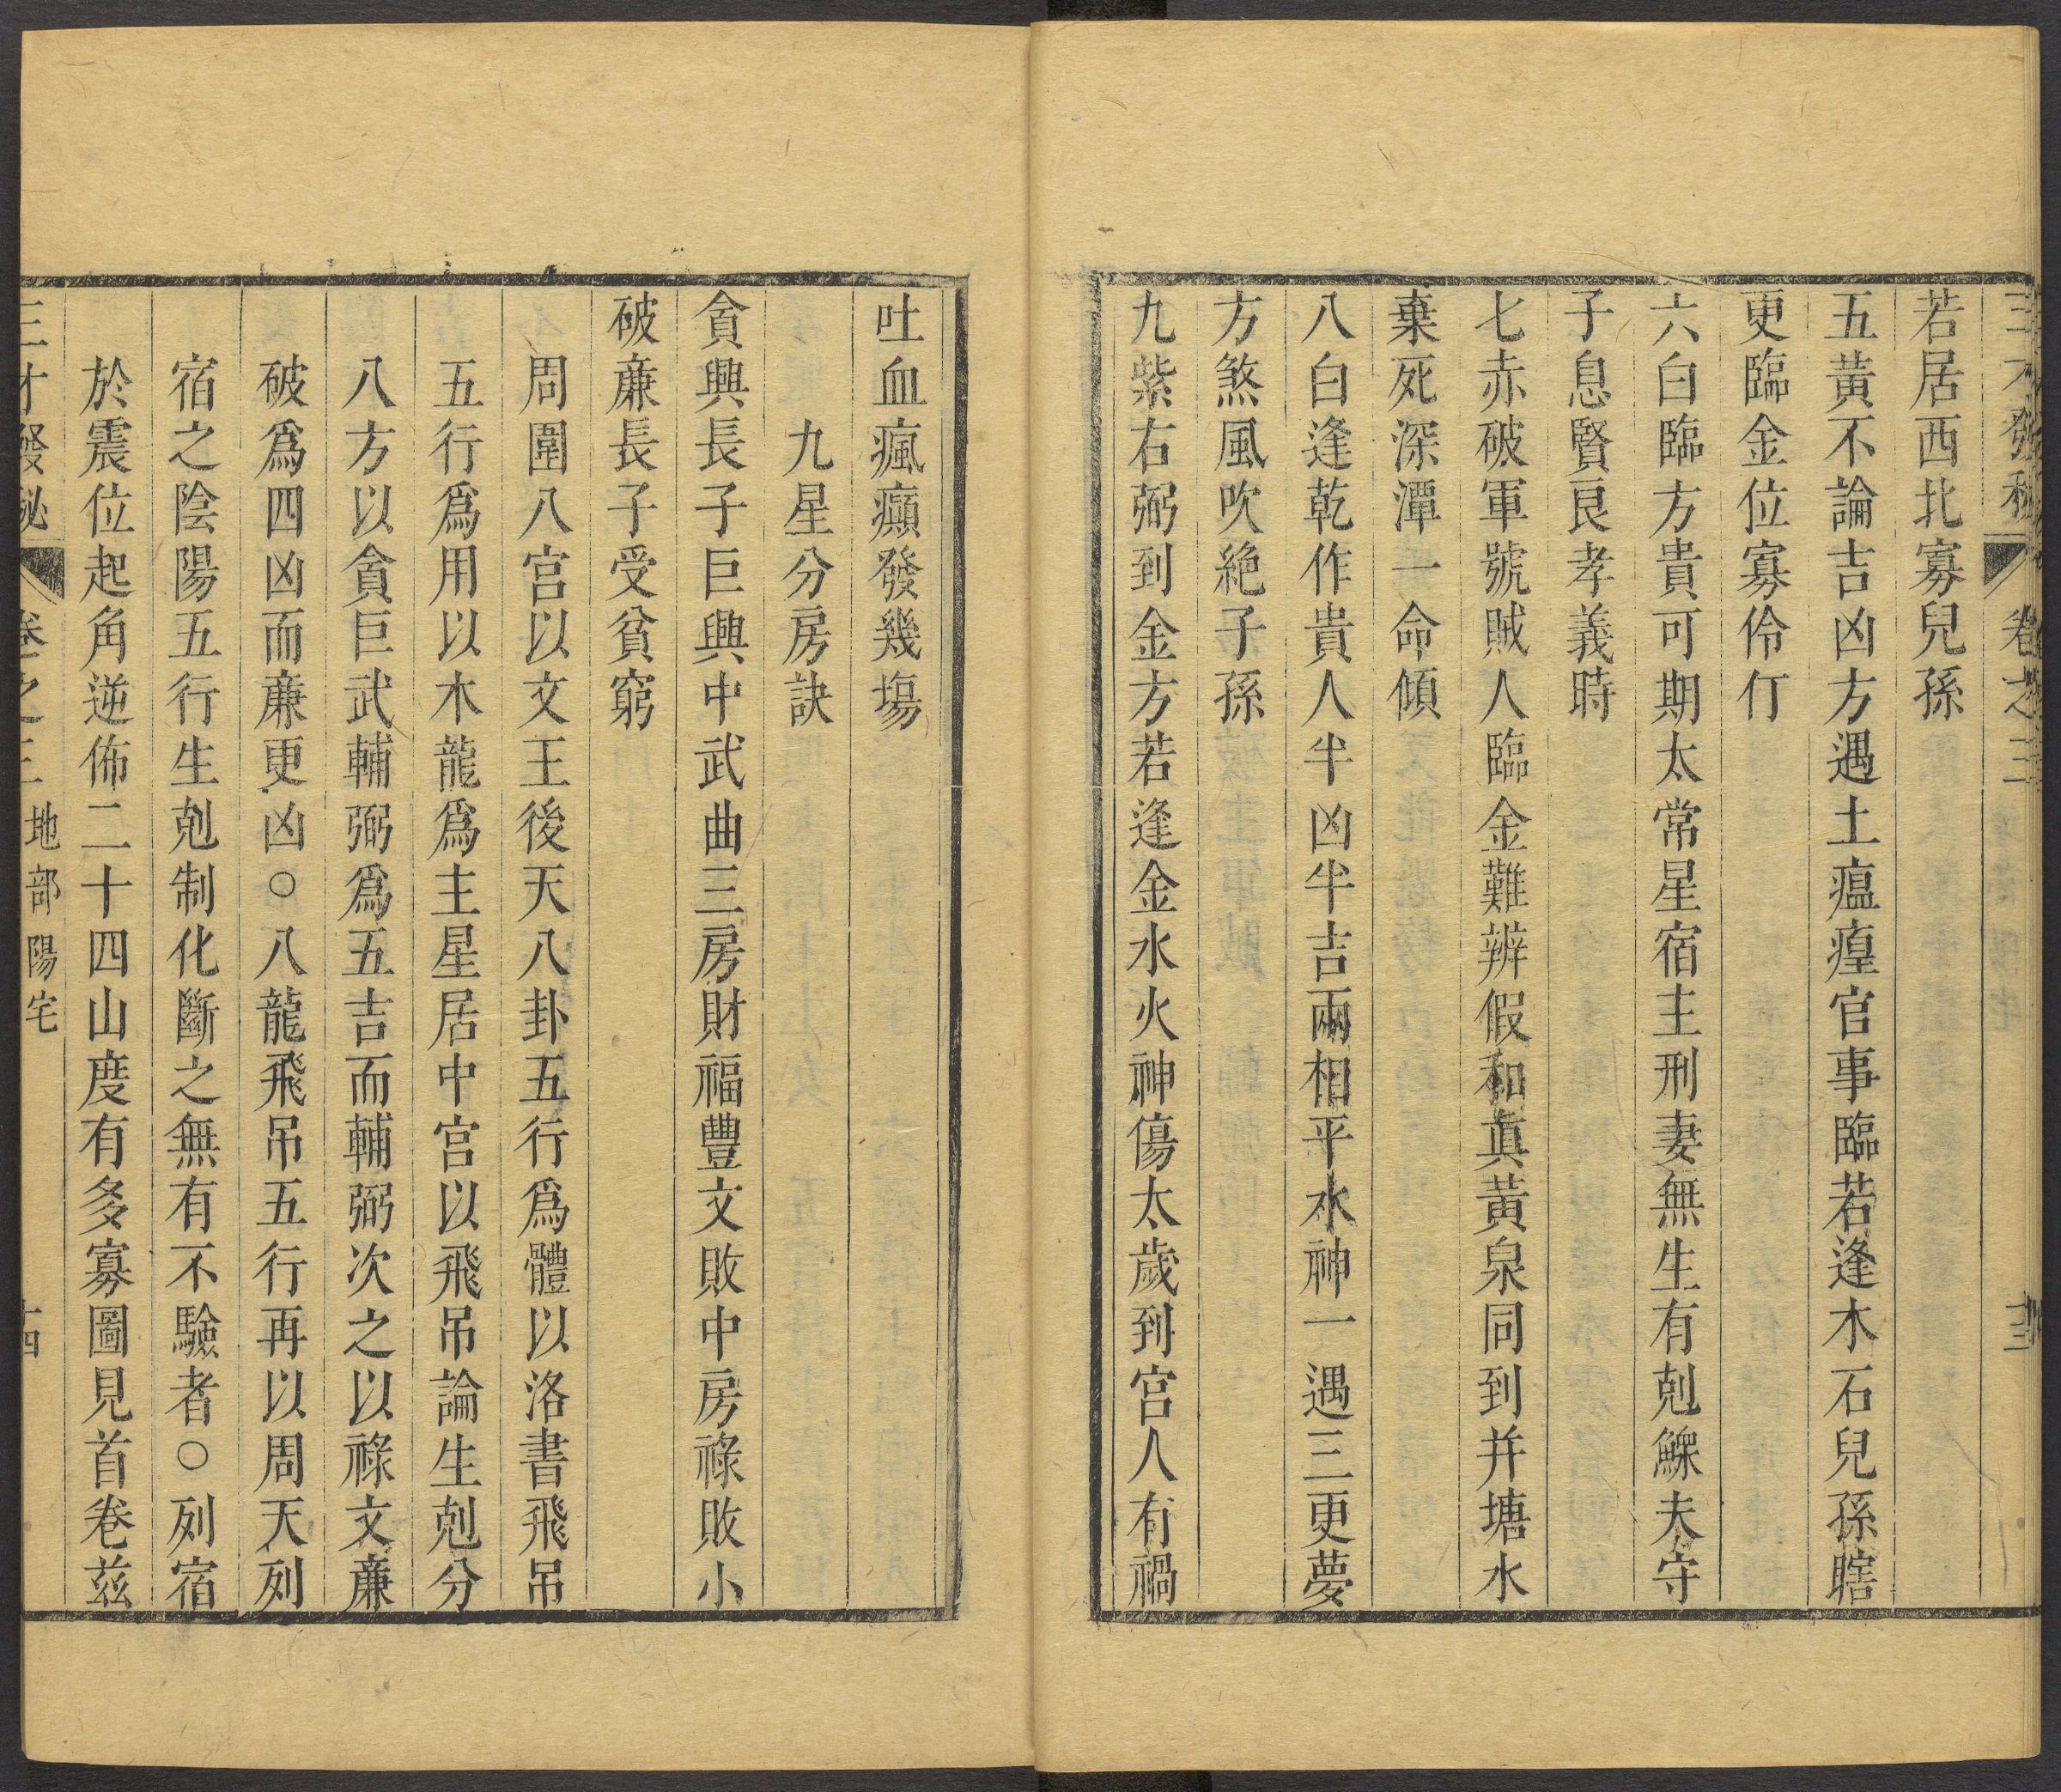 三才發秘 卷之三 十三
若居西北寡兒孫
五黃不論吉凶方遇土瘟㾮官事臨若逢木石兒孫瞎
更臨金位寡伶仃
六白臨方貴可期太常星宿主刑妻無生有剋鰥夫守
子息賢良孝義時
七赤破軍號賊人臨金難辨假和眞黃泉同到并塘水
棄死深潭一命傾
八白逢乾作貴人半凶半吉兩相平水神一遇三更夢
方煞風吹絶子孫
九紫右弼到金方若逢金水火神傷太歲到宫人有禍
吐血瘋癲發幾塲
九星分房訣
貪興長子巨興中武曲三房財福豐文敗中房祿敗小
破廉長子受貧窮
周圍八宫以文王後天八卦五行爲體以洛書飛吊
五行爲用以木龍爲主星居中宫以飛吊論生剋分
八方以貪巨武輔弼爲五吉而輔弼次之以祿文廉
破爲四凶而廉更凶○八龍飛吊五行再以周天列
宿之陰陽五行生剋制化斷之無有不驗者○列宿
於震位起角逆佈二十四山度有多寡圖見首卷茲
三才發秘 卷之三 地部陽宅 十四